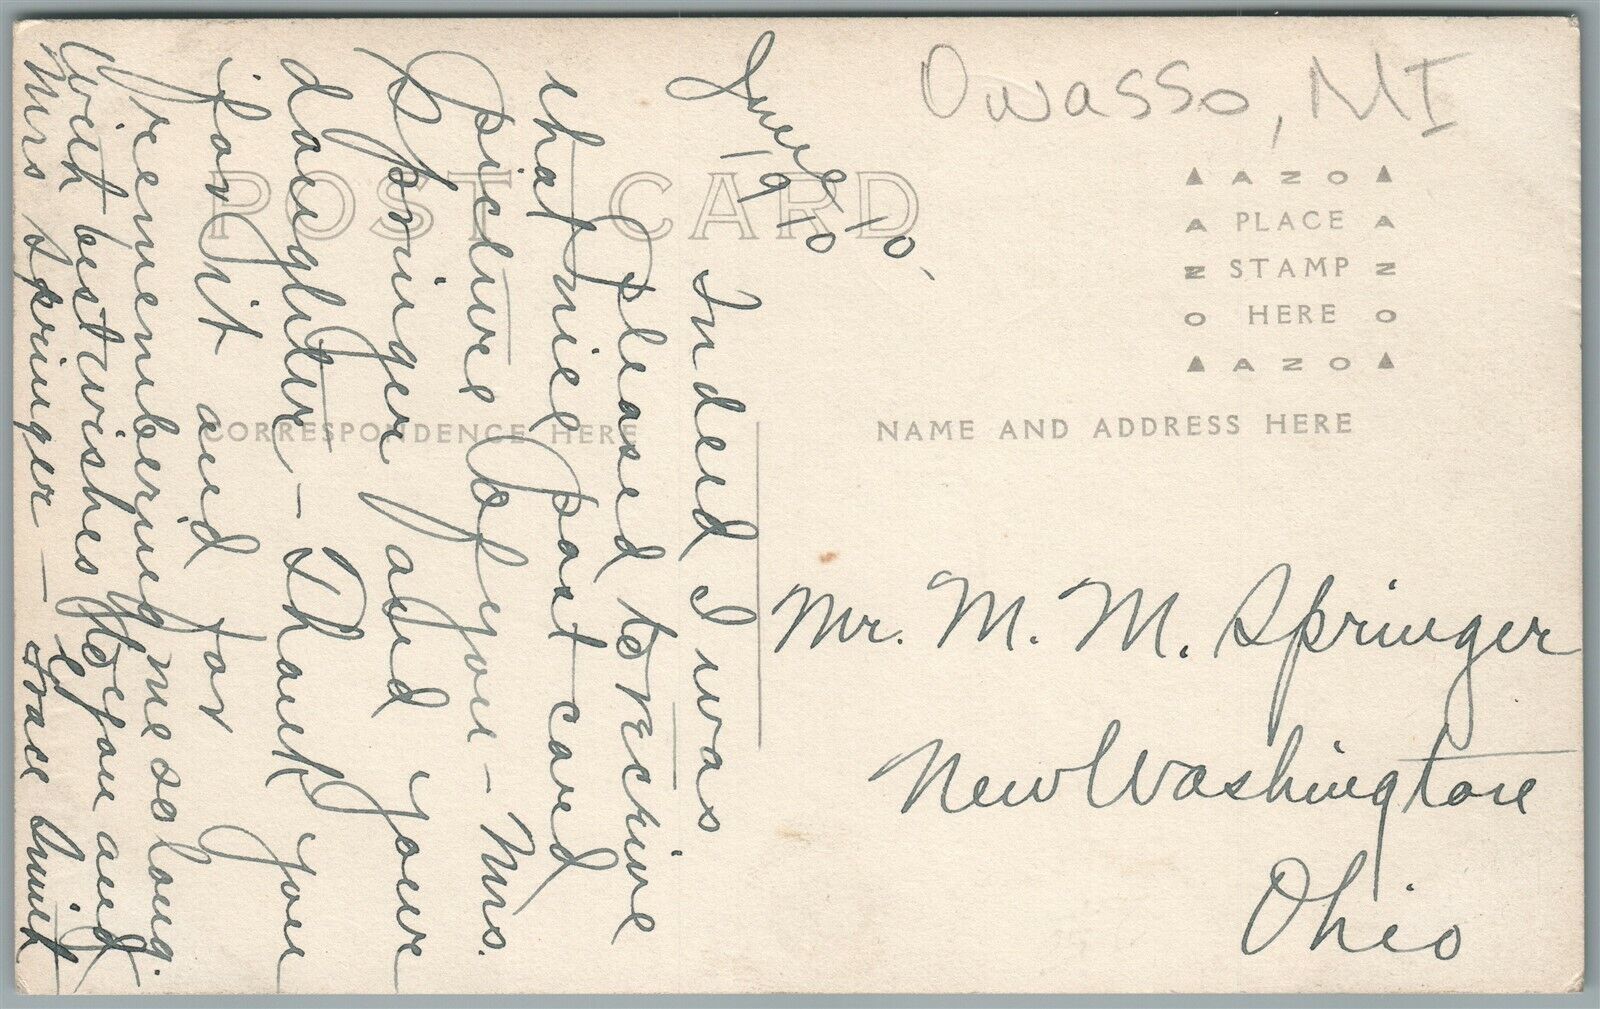 Owasso, MI
POST CARD
AZO
PLACE
STAMP
HERE
AZO
CORRESPONDENCE HERE
NAME AND ADDRESS HERE
Aug 10,
1910
Indeed I was
pleased to receive
that nice post card
picture of you - Mrs.
Springer and your
daughter, - Thank you
for it and for
remembering me so long.
With best wishes to you and
Mrs Springer - Grace Smith
Mr. M. M. Springer
New Washington
Ohio